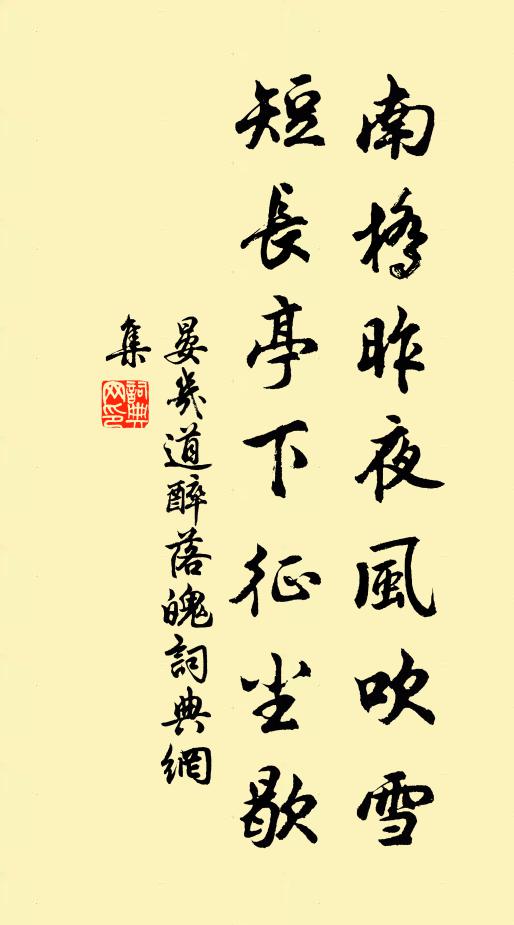 南橋昨夜風吹雪
短長亭下征尘歇
晏幾道醉落魄詞典網
集
詞典網印